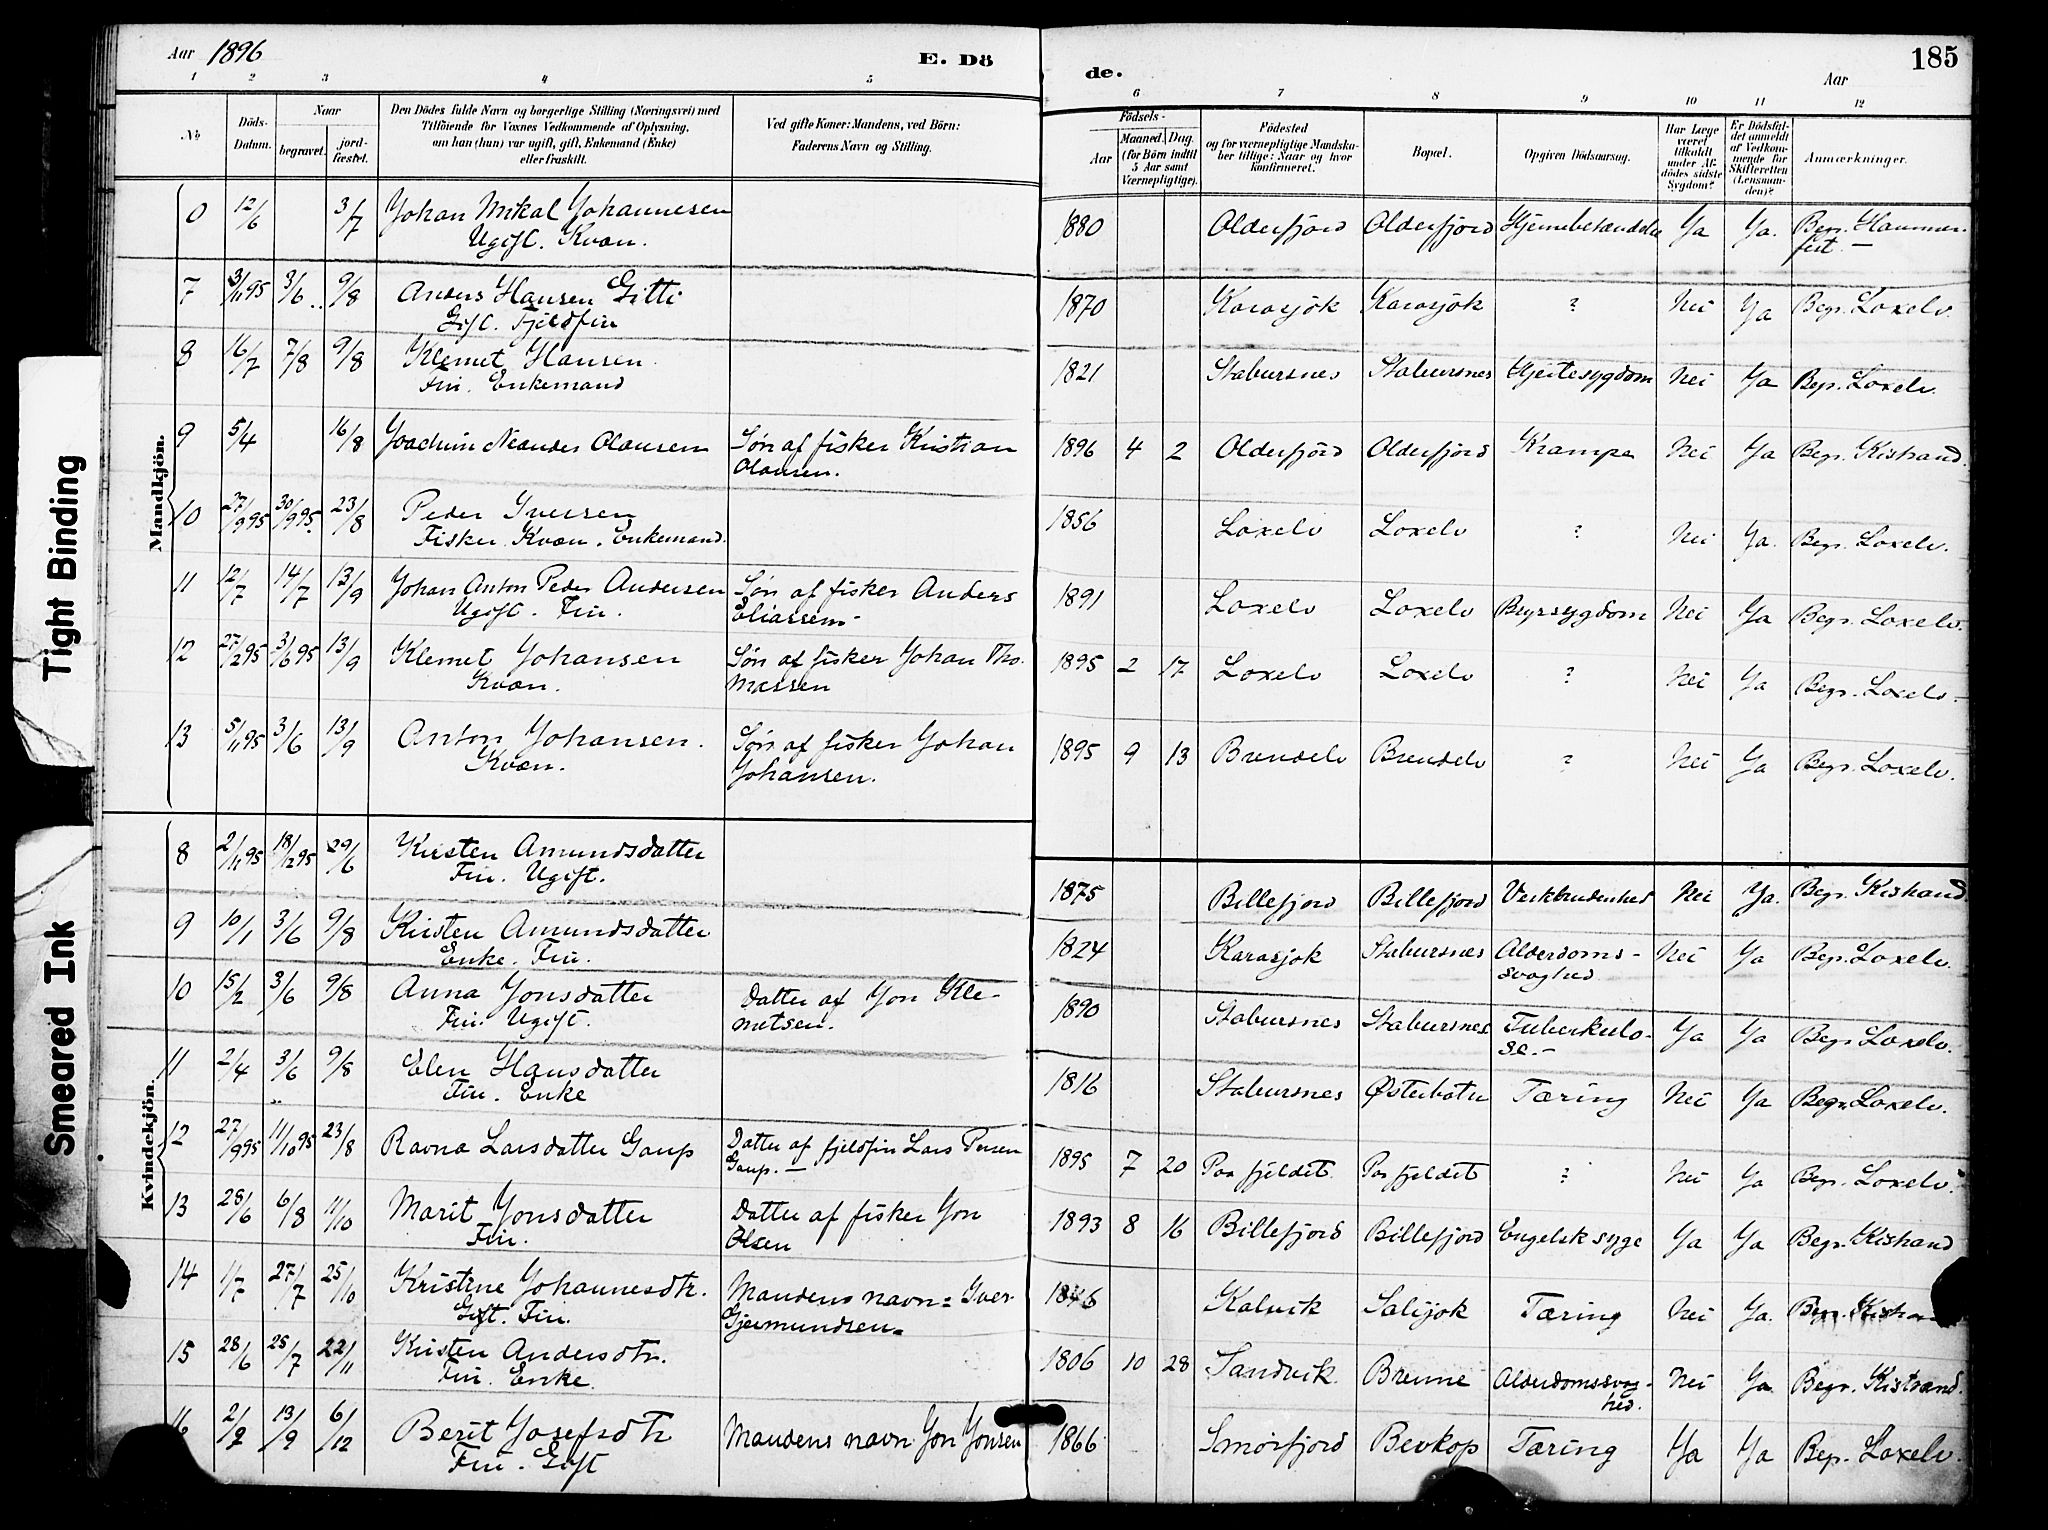 Aar 1896
E. Dö
de.
Aar
185
1 2 3 4 5
6 7 8 9 10 11 12
No
Döds-Datum.
Naar
begravet. jord-fæstet.
Den Dödes fulde Navn og borgerlige Stilling (Næringsvei) med
Tilföiende for Voxnes Vedkommende af Oplysning,
om han (hun) var ugift, gift, Enkemand (Enke)
eller fraskilt.
Ved gifte Koner: Mandens, ved Börn:
Faderens Navn og Stilling.
Födsels-
Aar
Maaned. Dag.
(for Börn indtil
5 Aar samt
Værnepligtige).
Födested
og for værnepligtige Mandska-
ber tillige: Naar og hvor
konfirmeret.
Bopæl.
Opgiven Dödsaarsag.
Har Læge
været
tilkaldt
under Af-
dödes sidste
Sygdom?
Er Dödsfal-
det anmeldt
af Vedkom-
mende for
Skifteretten
(Lensman-
den)?
Anmærkninger.
Mandkjön.
0 12/6 3/7 Johan Mikal Johannesen 1880 Olderfjord Olderfjord Hjernebetændelse Ja Ja. Begr. Hammer-
Ugift. Kvæn. fest. —
7 3/11 95 3/6 9/8 Anders Hansen Gitti 1870 Karasjok Karasjok ? Nei Ja Begr. Loxelv.
Gift. Fjeldfin
8 16/7 7/8 9/8 Klemet Hansen 1821 Stabursnes Stabursnes Hjertesygdom Nei Ja Begr. Loxelv.
Fin. Enkemand
9 5/4 16/8 Joachim Neander Olausen Søn af fisker Kristian 1896 4 2 Olderfjord Olderfjord Krampe Nei Ja Begr. Kistrand.
Olausen.
10 27/9 95 30/9 95. 23/8 Peder Iversen 1856 Loxelv Loxelv ? Nei Ja. Begr. Loxelv.
Fisker. Kvæn. Enkemand.
11 12/7 14/7 13/9 Johan Anton Peder Andersen Søn af fisker Anders 1891 Loxelv Loxelv Brystsygdom Nei Ja Begr. Loxelv.
Ugift. Fin. Eliassen-
12 27/2 95 3/6 95 13/9 Klemet Johansen Søn af fisker Johan Tho- 1895 2 17 Loxelv Loxelv ? Nei Ja Begr. Loxelv-
Kvæn. massen
13 5/11 95 3/6 13/9 Anton Johansen. Søn af fisker Johan 1895 9 13 Brendelv Brendelv ? Nei Ja Begr. Loxelv.
Kvæn. Johansen.
Kvindekjön.
8 2/11 95 18/12 95 29/6 Kirsten Amundsdatter 1875 Billefjord Billefjord Værkbrudenhed Nei Ja. Begr. Kistrand.
Fin. Ugift.
9 10/1 3/6 9/8 Kirsten Amundsdatter 1824 Karasjok Stabursnes Alderdoms- Nei Ja Begr. Loxelv.
Enke. Fin. svaghed
10 15/2 3/6 9/8 Anna Jonsdatter Datter af Jon Kle- 1890 Stabursnes Stabursnes Tuberkulo- Ja Ja Begr. Loxelv.
Fin. Ugift. metsen. se.-
11 2/4 3/6 9/8 Elen Hansdatter 1816 Stabursnes Østerbotn Tæring Nei Ja Begr. Loxelv.
Fin. Enke
12 27/9 95 11/10 95 23/8 Ravna Larsdatter Gaup Datter af fjeldfin Lars Persen 1895 7 20 Pas fjeldet. Pas fjeldet ? Nei Ja Begr. Loxelv.
Gaup. —
13 28/6 6/8 11/10 Marit Jonsdatter Datter af fisker Jon 1893 8 16 Billefjord Billefjord Engelsk syge Ja Ja Begr. Kistrand
Fin. Olsen
14 1/7 27/7 25/10 Kristine Johannesdtr. Mandens navn = Iver Kalvik Salijok Tæring Nei Ja. Begr. Kistrand
Gift. Fin. Gjermundsen=
15 28/6 25/7 22/11 Kirsten Andersdtr. 1806 10 28 Sandvik. Brenne Alderdomssvag- Nei Ja. Begr. Kistrand.
Fin. Enke. hed.
16 13/9 6/12 Berit Josefsdtr Mandens navn Jon Jonsen 1866 Smørfjord Bevkop Tæring Ja Ja Begr. Loxelv.
Fin. Gift
Tight Binding
Smeared Ink